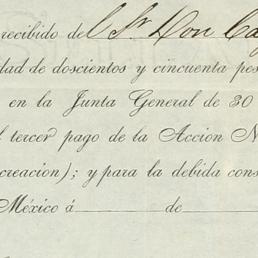 recibido del Sr. Don
dad de doscientos y cincuenta pes
en la Junta General de 30
l tercer pago de la Accion N
creacion); y para la debida cons
México á de